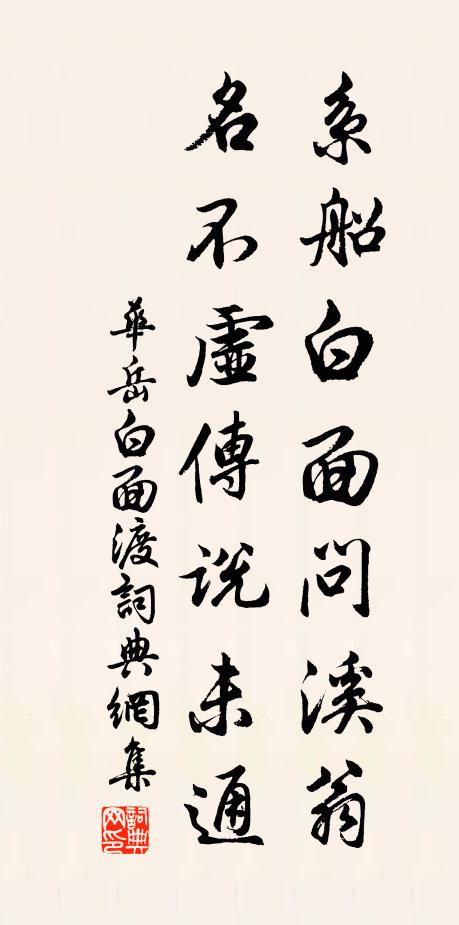 系船白面問溪翁
名不虛傳說未通
華岳白面渡詞典網集
詞典網印